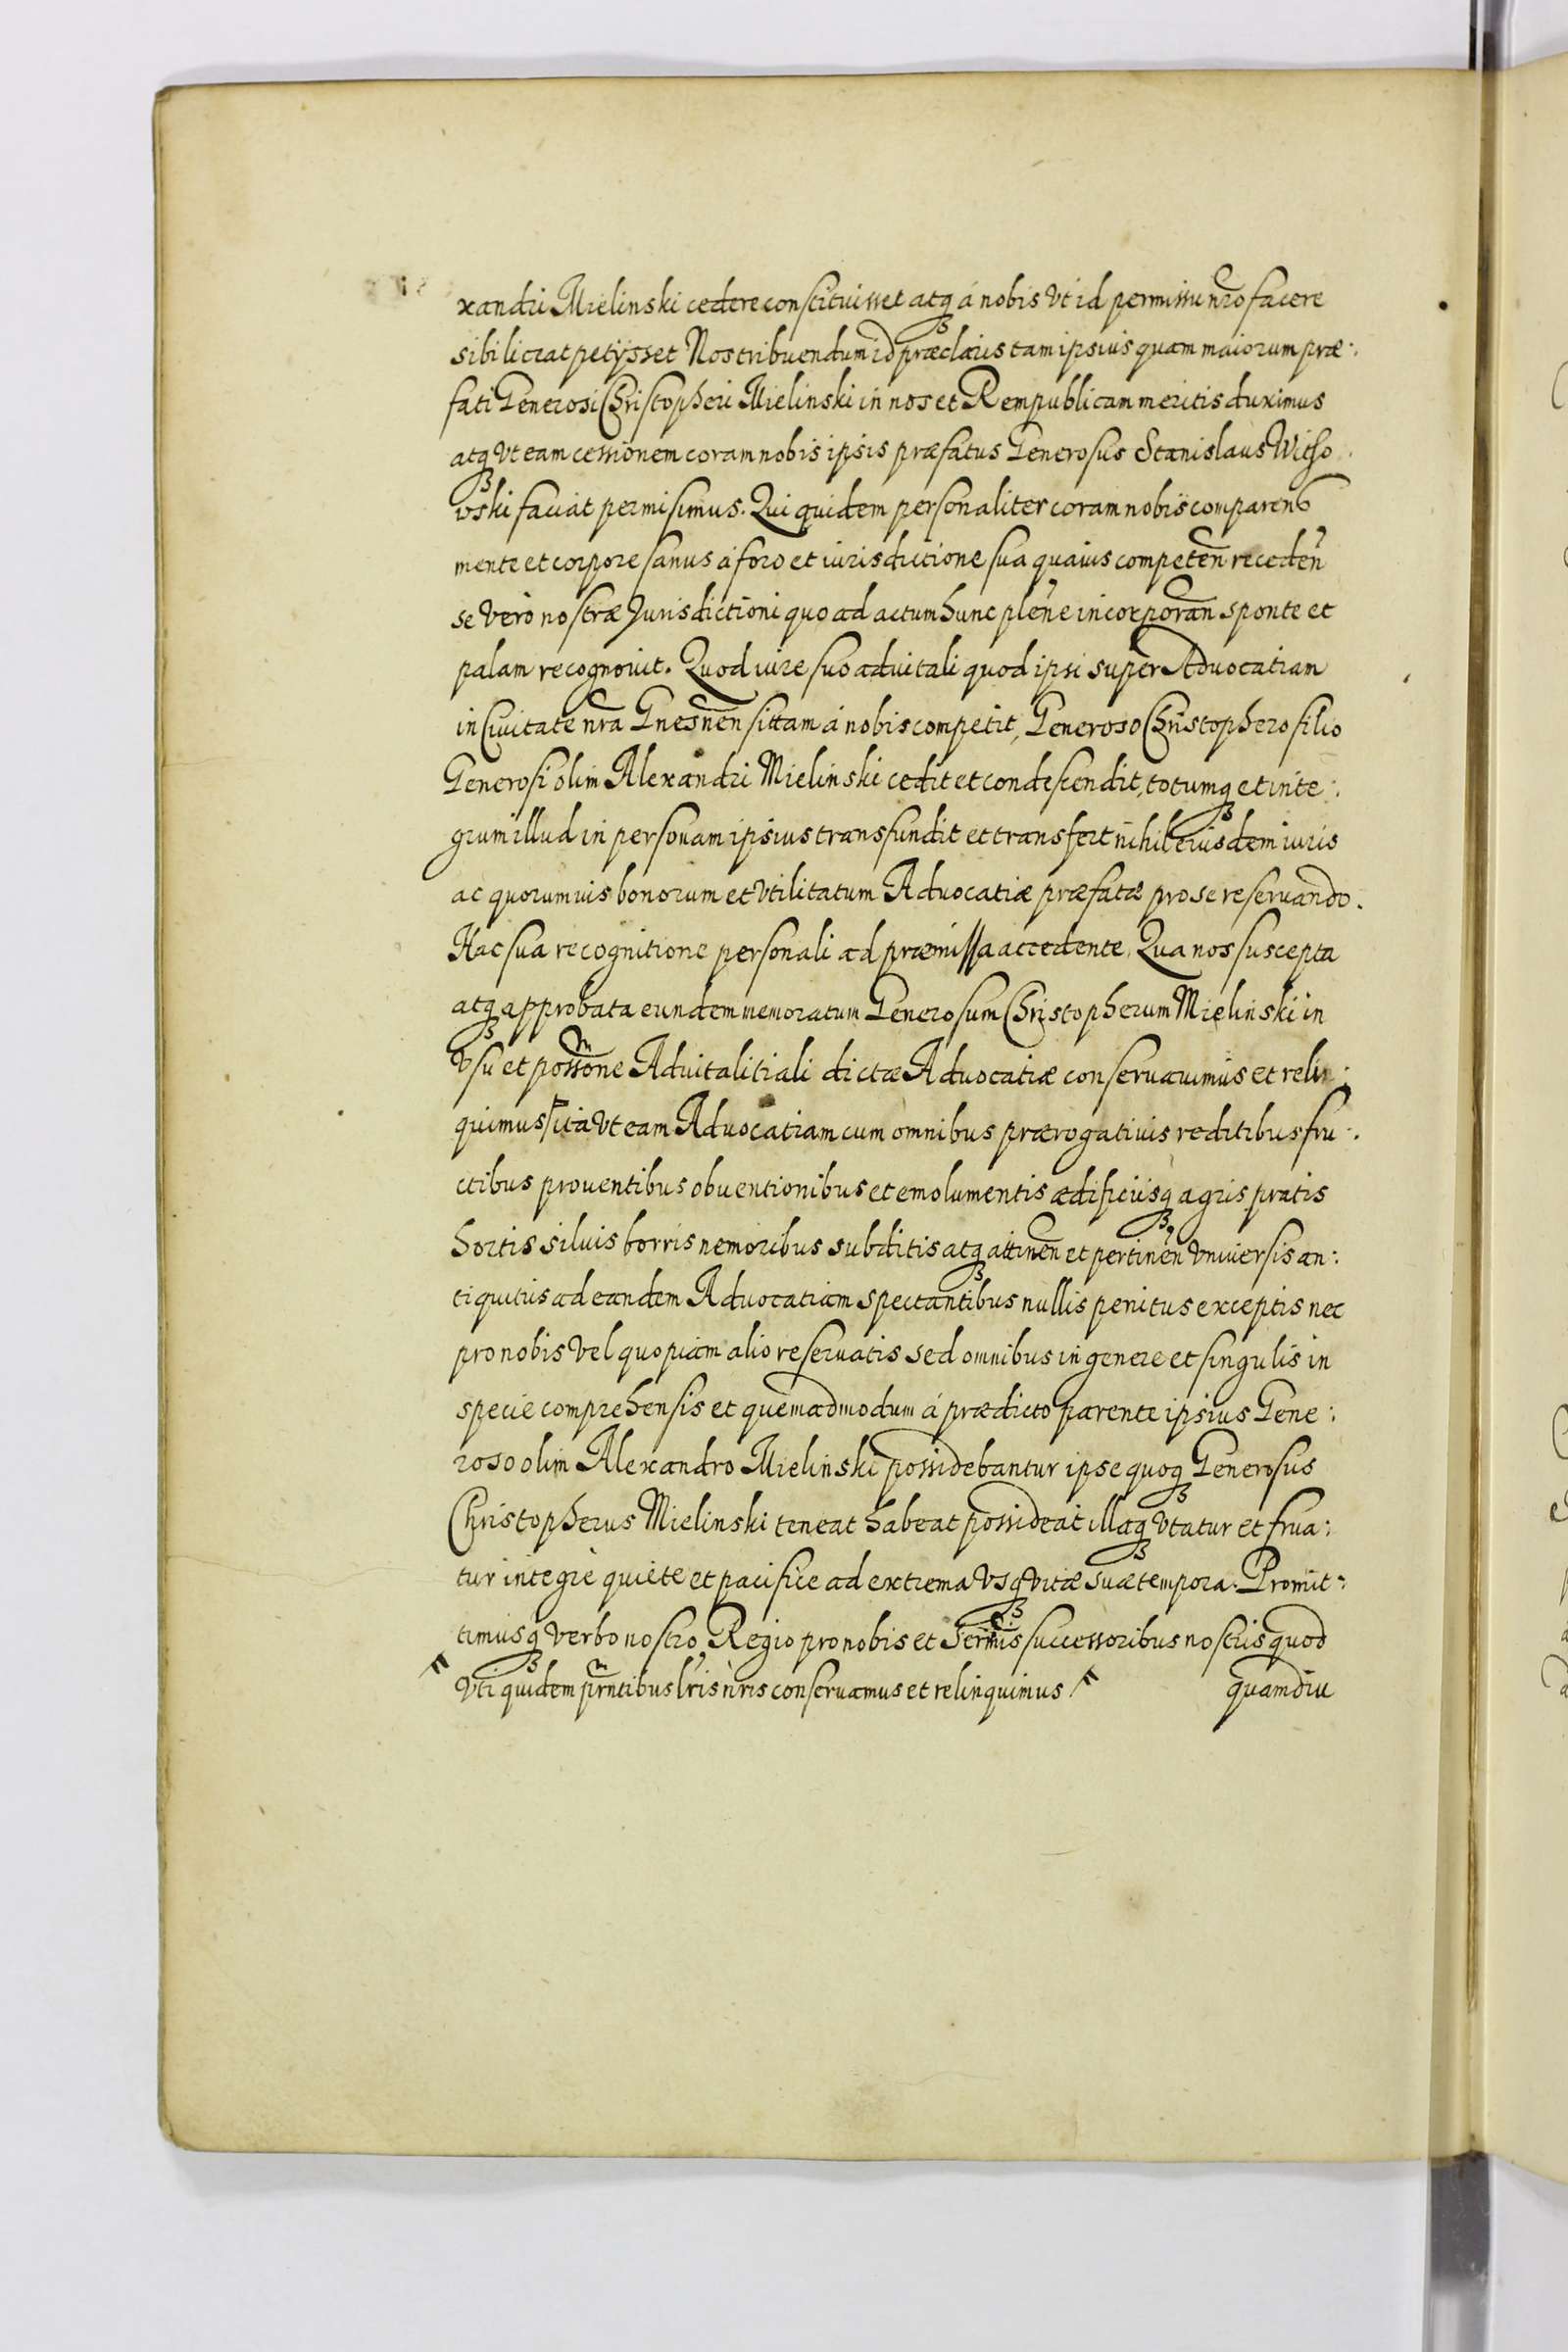 xandri Mielinski cedere constituisset atq3 á nobis Vt id permissu nro facere
sibi liceat petÿsset Nos tribuendum id præclaris tam ipsius quam maiorum præ:
fati Generosi Christopheri Mielinski in nos et Rempublicam meritis duximus
atq3 Vt eam cessionem coram nobis ipsis præfatus Generosus Stanislaus Witso
vski faciat permisimus. Qui quidem personaliter coram nobis comparens
mente et corpore sanus á foro et iurisdictione sua quavis competen̄ receden̄
se verò nostræ Jurisdictioni quo ad actum hunc plene incorporan̄ sponte et
palam recognovit. Quod iure suo advitali quod ipsi super Advocatiam
in Civitate nra Gnesnen̄ sittam á nobis competit, Generoso Christophero filio
Generosi olim Alexandri Mielinski cedit et condescendit, totumq3 et inte:
grum illud in personam ipsius transfundit et transfert nihil eiusdem iuris
ac quorumvis bonorum et Vtilitatum Advocatiæ præfatæ pro se reservando.
Hac sua recognitione personali ad præmissa accedente. Qua nos suscepta
atq3 approbata eundem memoratum Generosum Christopherum Mielinski in
Vsu et possone Advitalitiali dictæ Advocatiæ conservavimus et relin:
quimus ita Vt eam Advocatiam cum omnibus prærogativis reditibus fru:
ctibus proventibus obventionibus et emolumentis ædificiisq3 agris pratis
hortis silvis borris nemoribus subditis atq3 attinen̄ et pertinen̄ Vniversis an:
tiquitus ad eandem Advocatiam spectantibus nullis penitus exceptis nec
pro nobis Vel quopiam alio reservatis sed omnibus in genere et singulis in
specie comprehensis et quemadmodum á prædicto parente ipsius Gene:
roso olim Alexandro Mielinski possidebantur ipse quoq3 Generosus
Christopherus Mielinski teneat habeat possideat illaq3 Vtatur et frua:
tur integrè quiete et pacifice ad extrema Vsq3 Vitæ suæ tempora. Promit:
timusq3 verbo nostro Regio pro nobis et Sermis successoribus nostris quod
Vti quidem pmtibus lris nris conservamus et relinquimus quamdiu